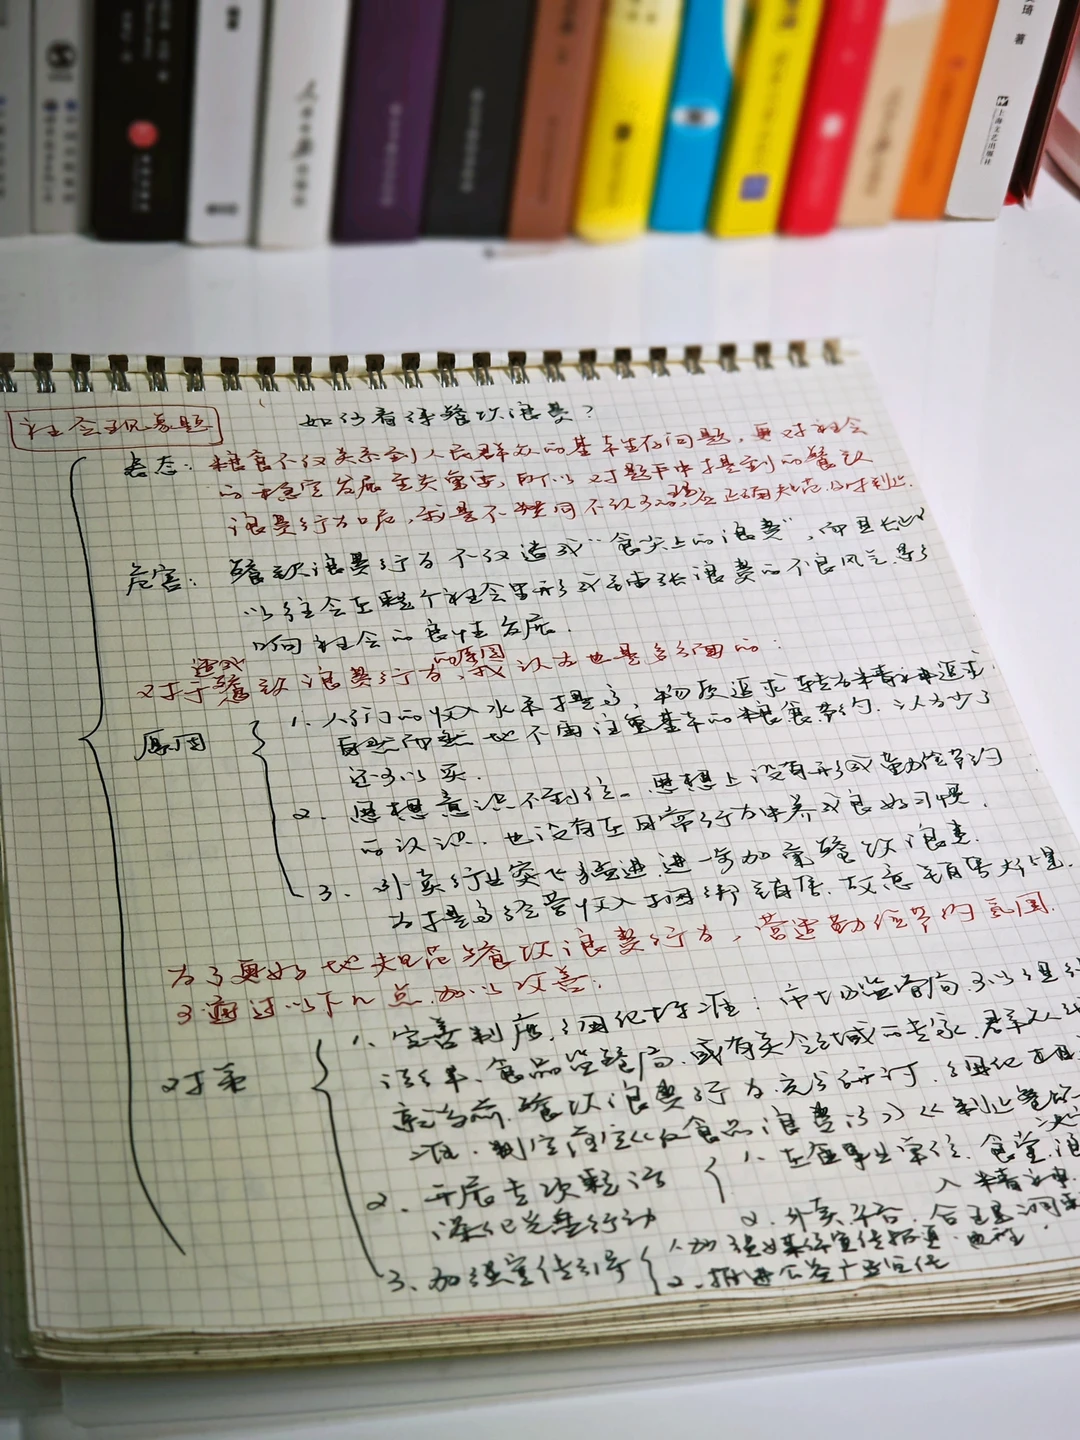 琦 著
上海文艺出版社
社会现象题
如何看待餐饮浪费？
表态：粮食不仅关系到人民群众的基本生存问题，更对社会
的稳定发展至关重要，所以对题干中提到的餐饮
浪费行为，我是不赞同不认可的，应正确规范及时制止．
危害：餐饮浪费行为不仅造成“舌尖上的浪费”，而且长此
以往会在整个社会里形成铺张浪费的不良风气．影
响社会的良性发展．
对于造成餐饮浪费行为的原因，我认为也是多方面的：
原因
1．人们的收入水平提高，物质追求转为精神追求，
自然而然地不再注重基本的粮食节约．认为少了
还可以买．
2．思想意识不到位。思想上没有形成勤俭节约
的认识．也没有在日常行为中养成良好习惯．
3．外卖行业突飞猛进，进一步加重餐饮浪费．
为提高经营收入捆绑销售．故意销售大份量．
为了更好地规范餐饮浪费行为，营造勤俭节约氛围．
可通过以下几点加以改善：
对策
1．完善制度，细化标准：市场监管局可以组织
消费、食品监管局．或有关领域的专家．群众代
就当前餐饮浪费行为充分研讨．细化
准．制定落实《反食品浪费法》《制止餐饮
2．开展专项整治
深化光盘行动
1．在企事业单位．食堂
入精神
2．外卖平台．合理
3．加强宣传引导
1．加强媒体宣传报道．
2．推进公益广告宣传